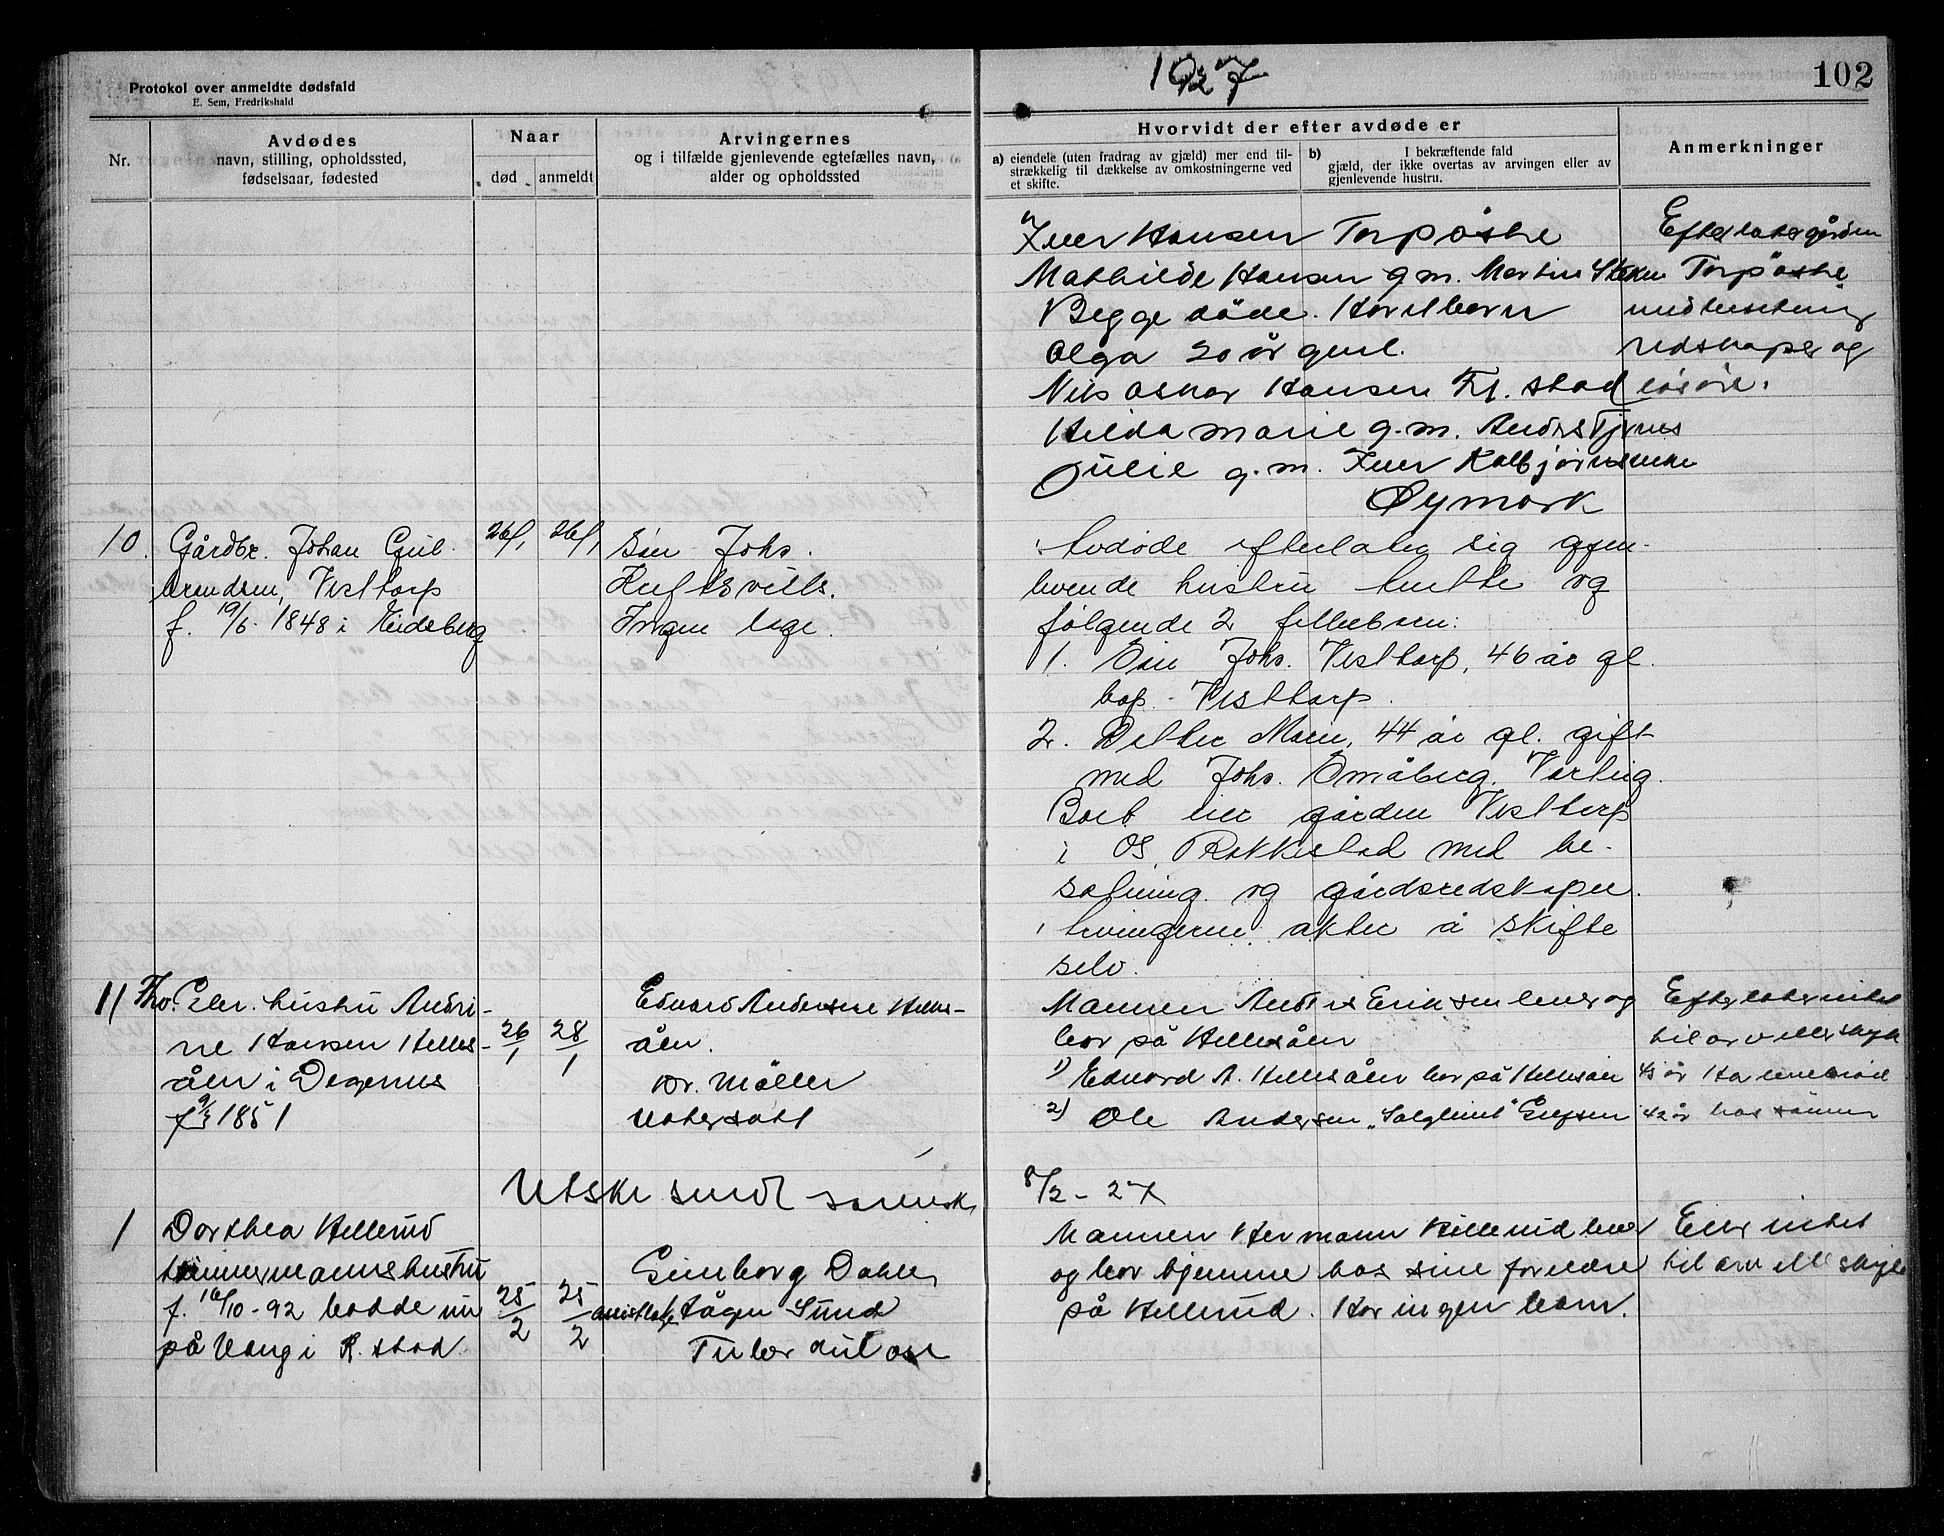 Protokol over anmeldte dødsfald
E. Sem, Fredrikshald
1927
102
Nr.
Avdødes
navn, stilling, opholdssted,
fødselsaar, fødested
Naar
død
anmeldt
Arvingernes
og i tilfælde gjenlevende egtefælles navn,
alder og opholdssted
Hvorvidt der efter avdøde er
a) eiendele (uten fradrag av gjæld) mer end til-
strækkelig til dækkelse av omkostningerne ved
et skifte.
b) I bekræftende fald
gjæld, der ikke overtas av arvingen eller av
gjenlevende hustru.
Anmerkninger
Iver Hansen Torpøstre
Mathilde Hansen g.m. Martin
Begge döde. Har 1 barn
Olga 20 år gml.
Nils Oskar Hansen Fr. stad
Hilda Marie g.m. Anders Tjernes
Julie g.m. Iver Kolbjørnsvike
Øymark
Efterlater gården
Torpøstre
med besetning
redskaper og
løsøre.
10. Gårdbr. Johan Gul-
brandsen, Vesttorp
f. 19/6 1848 i Eidsberg
26/1 26/1
Søn Johs.
Ingen lege.
Avdøde efterlater sig gjen-
levende hustru og
følgende 2 fellesbarn:
1. Søn Johs. Vesttorp, 46 år gl.
bop. Vesttorp.
2. Datter Marie, 44 år gl. gift
med Johs. Småberg, Varteig.
Boet eier gården Vesttorp
i Os, Rakkestad med be-
setning og gårdsredskaper.
Arvingerne akter å skifte
selv.
11 Fhv. Eier. hustru Andri-
ne Hansen Helles-
åen i Degernes
f 9/3 1851
26/1 28/1
Edvard Andersen Helles-
åen.
Dr. Möller
Mannen Anders Eriksen lever og
bor på Hellesåen
1) Edvard A. Hellesåen bor på Hellesåen 45 år
2) Ole Andersen "Solglimt" Grefsen 42 år
Efterlater intet
til arv eller skifte
hos sönnen
Utskr sendt
8/2 - 27
1 Dorthea Hellerud
tømmermannshustru
f. 16/10-92 bodde
på Vang i R. stad
25/2 25/2
Gunborg Dahler
Sund
Mannen Hermann Hellerud lever
og bor hjemme hos sine foreldre
på Hellerud. Har ingen barn.
Eier intet
til arv ell. skifte